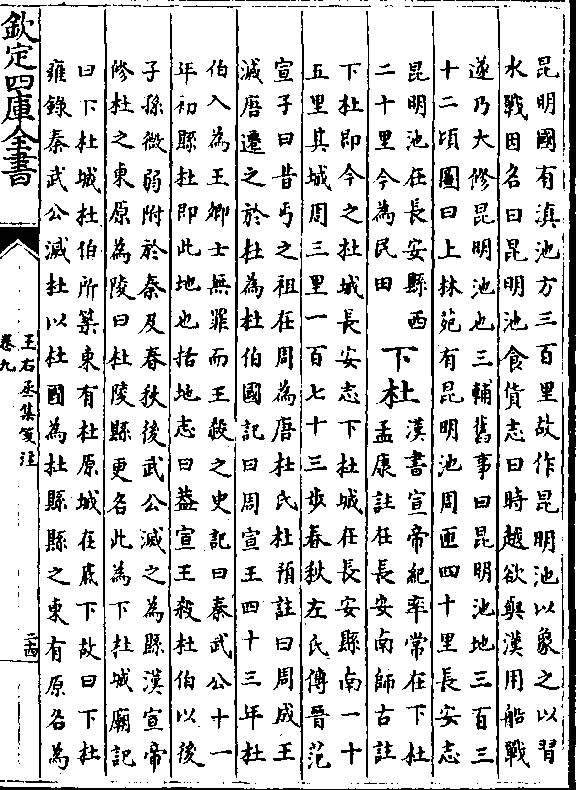 昆明國有滇池方三百里故作昆明池以象之以習
水戰因名曰昆明池食貨志曰時越欲與漢用船戰
遂乃大修昆明池也三輔舊事曰昆明池地三百三
十二頃圖曰上林苑有昆明池周匝四十里長安志
昆明池在長安縣西
二十里今為民田
下杜
漢書宣帝紀率常在下杜
孟康註在長安南師古註
下杜即今之杜城長安志下杜城在長安縣南一十
五里其城周三里一百七十三步春秋左氏傳晉范
宣子曰昔丐之祖在周為唐杜氏杜預註曰周成王
滅唐遷之於杜為杜伯國記曰周宣王四十三年杜
伯入為王卿士無罪而王殺之史記曰秦武公十一
年初縣杜即此地也括地志曰蓋宣王殺杜伯以後
子孫微弱附於秦及春秋後武公滅之為縣漢宣帝
修杜之東原為陵曰杜陵縣更名此為下杜城廟記
曰下杜城杜伯所築東有杜原城在底下故曰下杜
雍錄秦武公滅杜以杜國為杜縣縣之東有原名為
欽定四庫全書
王右丞集箋注
卷九
二十四